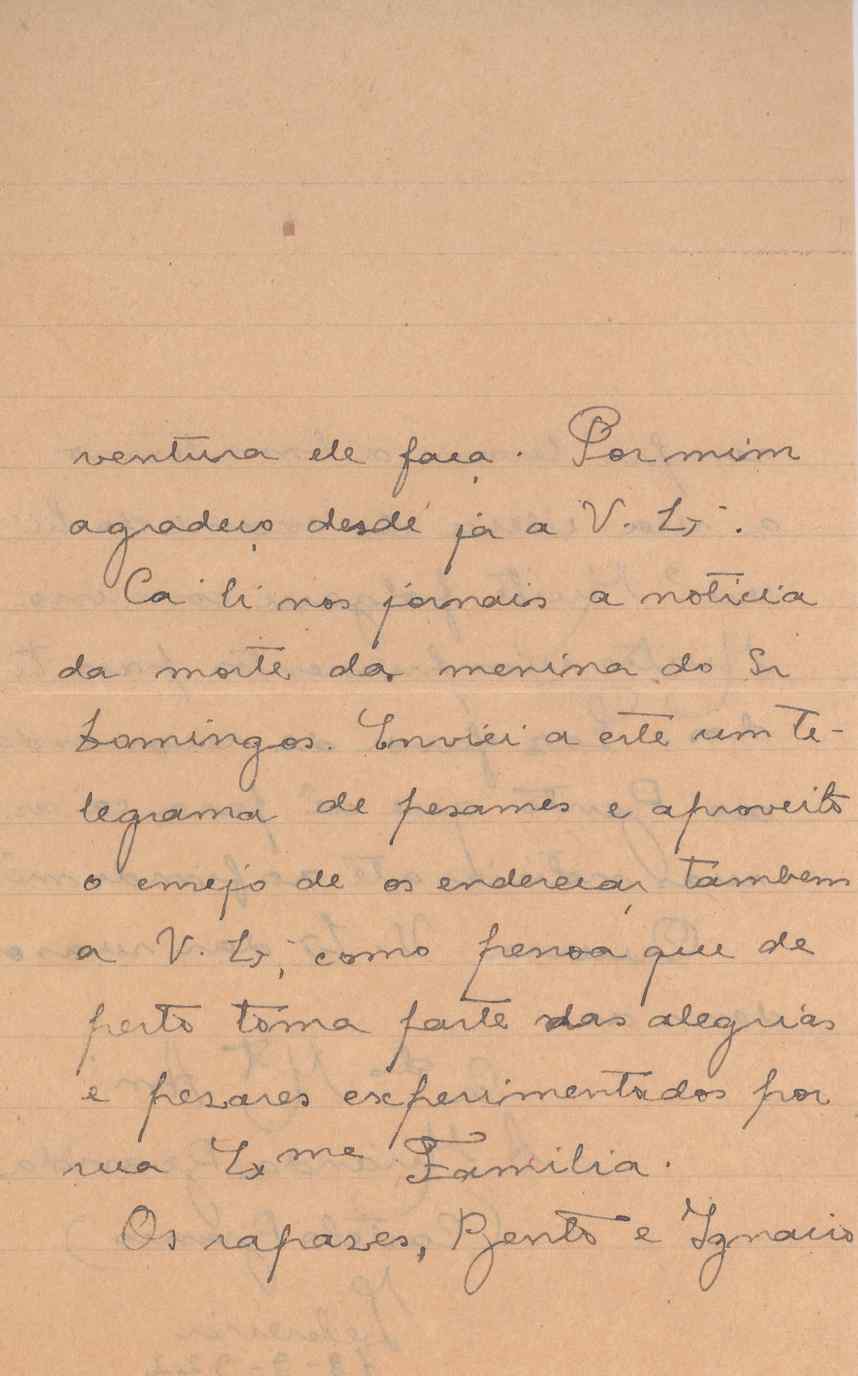 ventura ele faça. Por mim
agradeço desde já a V. Ex.ª.
Cá li nos jornais a noticia
da morte da menina do Sr
Domingos. Enviei a este um te-
legrama de pesames e aproveito
o ensejo de os endereçar tambem
a V. Ex.ª, como pessoa que de
perto toma parte das alegrias
e pezares experimentados por
sua Exme Familia.
Os rapazes, Bento e Ignacio